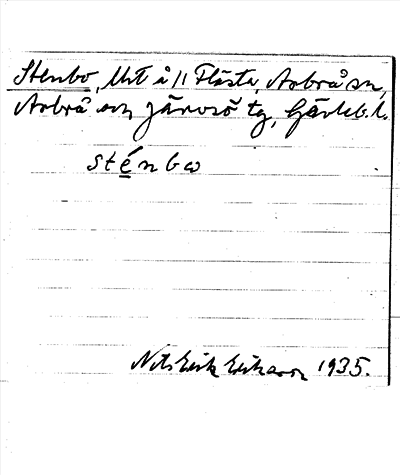 Stenbo, Utt å 11 Flästa, Arbrå sn,
Arbrå och Järvsö tg, Gävleb. l.
sténbω
Nils Erik Eriksson 1935.